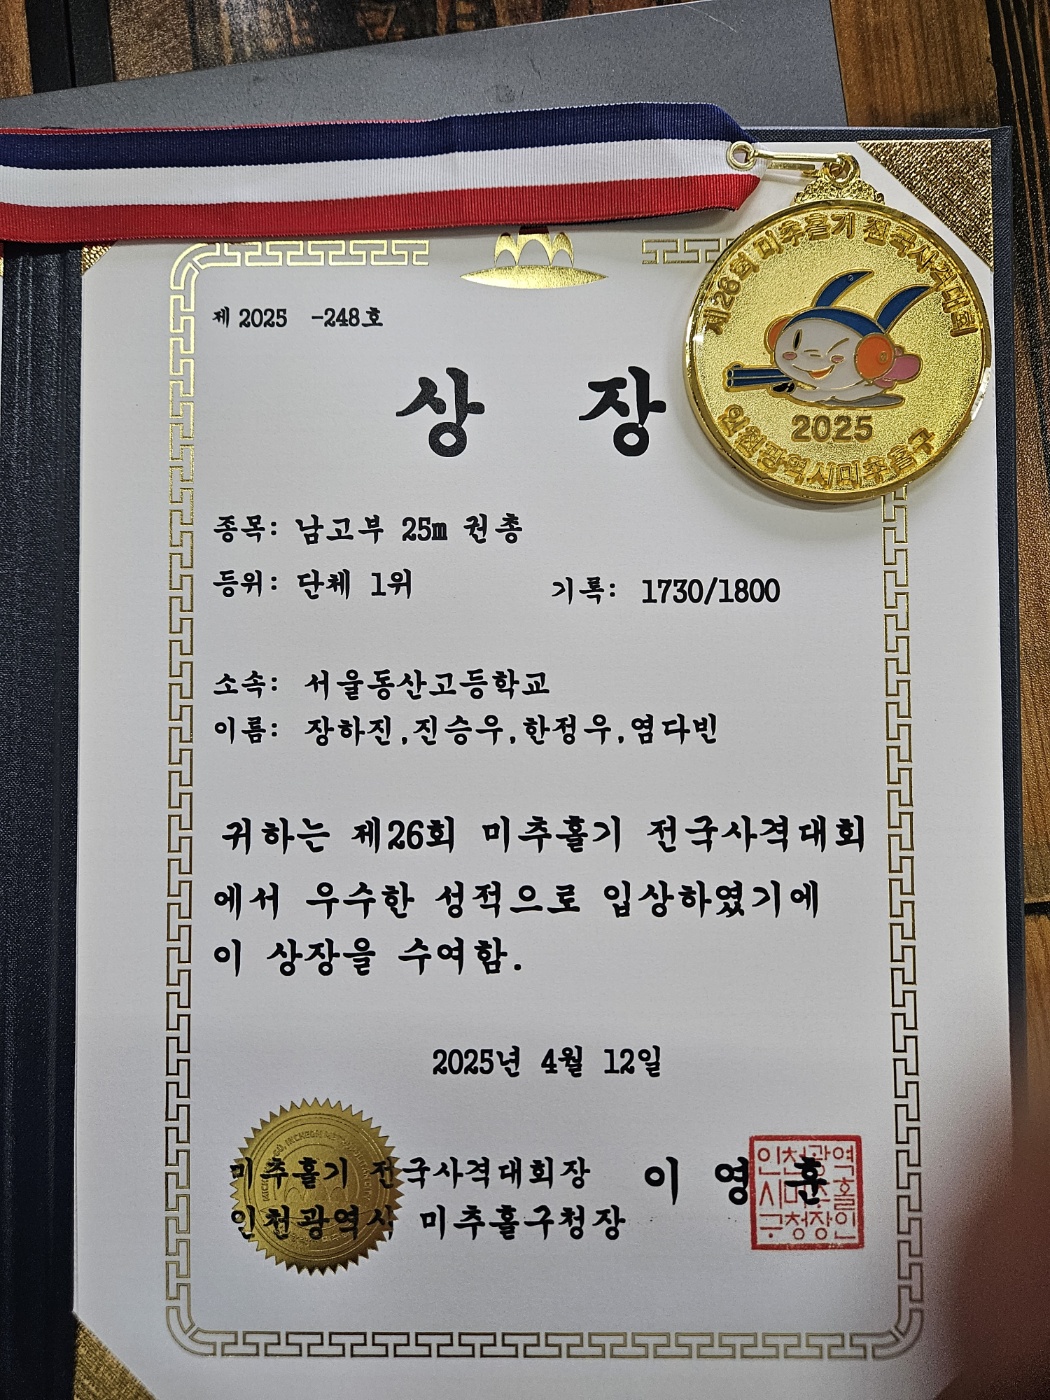 제26회 미추홀기 전국사격대회
2025
인천광역시미추홀구
제 2025 -248호
상 장
종목: 남고부 25m 권총
등위: 단체 1위 기록: 1730/1800
소속: 서울동산고등학교
이름: 장하진,진승우,한정우,염다빈
귀하는 제26회 미추홀기 전국사격대회
에서 우수한 성적으로 입상하였기에
이 상장을 수여함.
2025년 4월 12일
미추홀기 전국사격대회장 이 영 훈
인천광역시 미추홀구청장
인천광역
시미추홀
구청장인